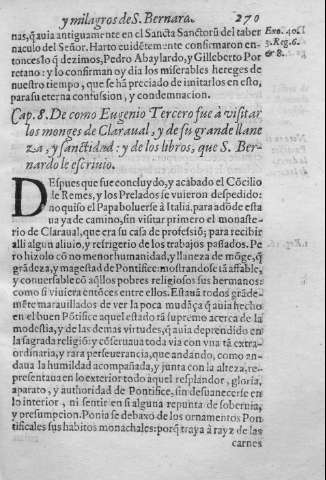 y milagros de S. Bernara.
270
nas, q̃ auia antiguamente en el Sancta Sanctorũ del taber
naculo del Señor. Harto euidẽtemente confirmaron en-
tonces lo q̃ dezimos, Pedro Abaylardo, y Gilleberto Por
retano: y lo confirman oy dia los miserables hereges de
nuestro tiempo, que se hã preciado de imitarlos en esto,
para su eterna confusion, y condemnacion.
Exo. 40.
3. Reg. 6.
& 8.
Cap. 8. De como Eugenio Tercero fue à visitar
los monges de Claraual, y de su grande llane
za, y sanctidad: y de los libros, que S. Ber-
nardo le escriuio.
DEspues que fue concluydo, y acabado el Cõcilio
de Remes, y los Prelados se vuieron despedido:
no quiso el Papa boluerse à Italia, para adõde esta
ua ya de camino, sin visitar primero el monaste-
rio de Claraual, que era su casa de professiõ; para recibir
alli algun aliuio, y refrigerio de los trabajos passados. Pe
ro hizolo cõ no menor humanidad, y llaneza de mõge, q̃
grãdeza, y magestad de Pontifice: mostrandose tã affable,
y conuersable cõ aq̃llos pobres religiosos sus hermanos:
como si viuiera entõces entre ellos. Estauã todos grãde-
mẽte marauillados de ver la poca mudãça q̃ auia hecho
en el buen Põtifice aquel estado tã supremo acerca de la
modestia, y de las demas virtudes, q̃ auia deprendido en
la sagrada religiõ: y cõseruaua toda via con vna tã extra-
ordinaria, y rara perseuerancia, que andando, como an-
daua la humildad acompañada, y junta con la alteza, re-
presentaua en lo exterior todo aquel resplandor, gloria,
aparato, y authoridad de Pontifice, sin desuanecerse en
lo interior, ni sentir en si alguna repunta de soberuia,
y presumpcion. Ponia se debaxo de los ornamentos Pon
tificales sus habitos monachales: porq̃ traya à rayz de las
carnes